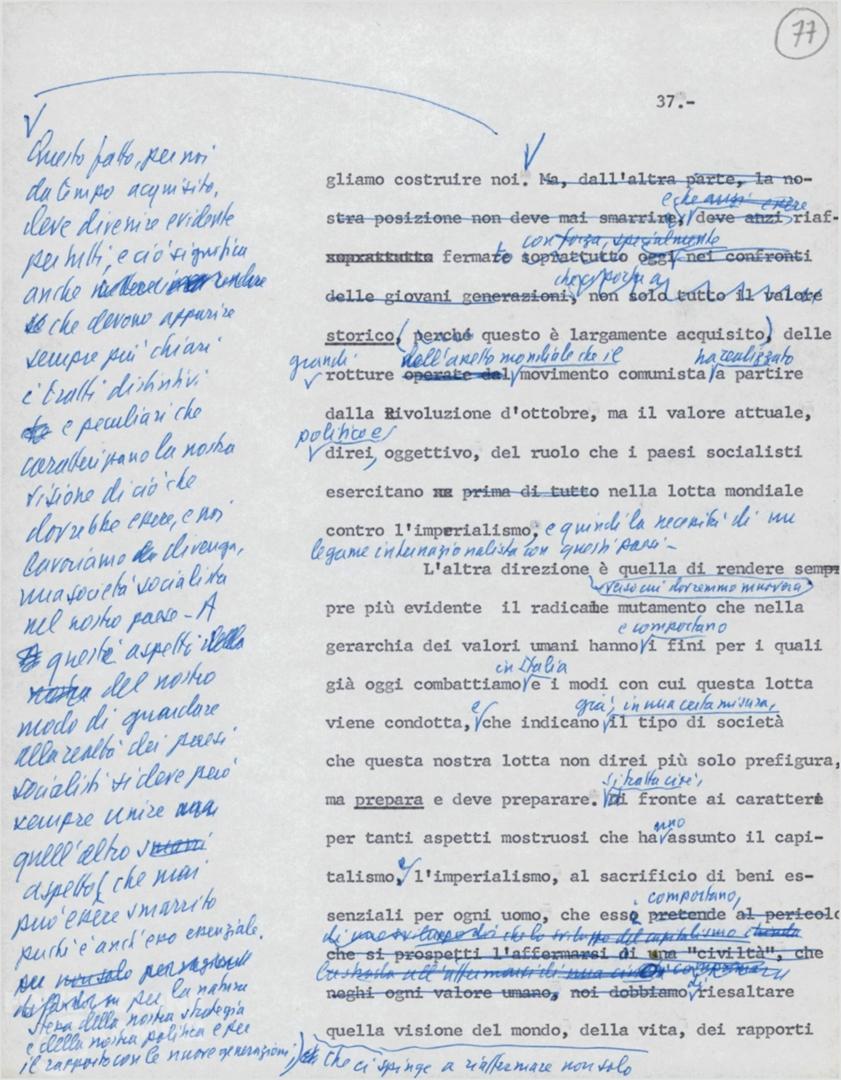 77
37.-
Questo fatto, per noi
da tempo acquisito,
deve divenire evidente
per tutti, e ciò significa
anche rendere
che devono apparire
sempre più chiari
i tratti distintivi
e peculiari che
caratterizzano la nostra
visione di ciò che
dovrebbe essere, e noi
lavoriamo divenga,
una società socialista
nel nostro paese - A
questi aspetti della
nostra del nostro
modo di guardare
alla realtà dei paesi
socialisti si deve però
sempre unire
quell'altro
aspetto (che mai
può essere smarrito
perché è anch'esso essenziale,
per la natura
stessa della nostra strategia
e della nostra politica e per
il rapporto con le nuove generazioni,)
che ci spinge a riaffermare non solo
gliamo costruire noi. Ma, dall'altra parte, la no-
e che anzi essere
stra posizione non deve mai smarrire, deve anzi riaf-
con forza, specialmente
soprattutto fermare soprattutto oggi nei confronti
che ci porta a
delle giovani generazioni, non solo tutto il valore
storico, (perché questo è largamente acquisito) delle
grandi nell'assetto mondiale che il ha realizzato
rotture operate dal movimento comunista a partire
dalla Rivoluzione d'ottobre, ma il valore attuale,
politico e
direi, oggettivo, del ruolo che i paesi socialisti
esercitano prima di tutto nella lotta mondiale
contro l'imperialismo, e quindi la necessità di un
legame internazionalista con questi paesi -
L'altra direzione è quella di rendere sempre
verso cui dovremmo muoverci
pre più evidente il radicale mutamento che nella
e comportano
gerarchia dei valori umani hanno i fini per i quali
in Italia
già oggi combattiamo e i modi con cui questa lotta
e già, in una certa misura,
viene condotta, che indicano il tipo di società
che questa nostra lotta non direi più solo prefigura,
si tratta cioè,
ma prepara e deve preparare. di fronte ai caratteri
nno
per tanti aspetti mostruosi che ha assunto il capi-
e
talismo, l'imperialismo, al sacrificio di beni es-
comportano,
senziali per ogni uomo, che esso pretende al pericolo
che lo sviluppo del capitalismo
che si prospetti l'affermarsi di una "civiltà", che
all'affermarsi di una
neghi ogni valore umano, noi dobbiamo riesaltare
di
quella visione del mondo, della vita, dei rapporti